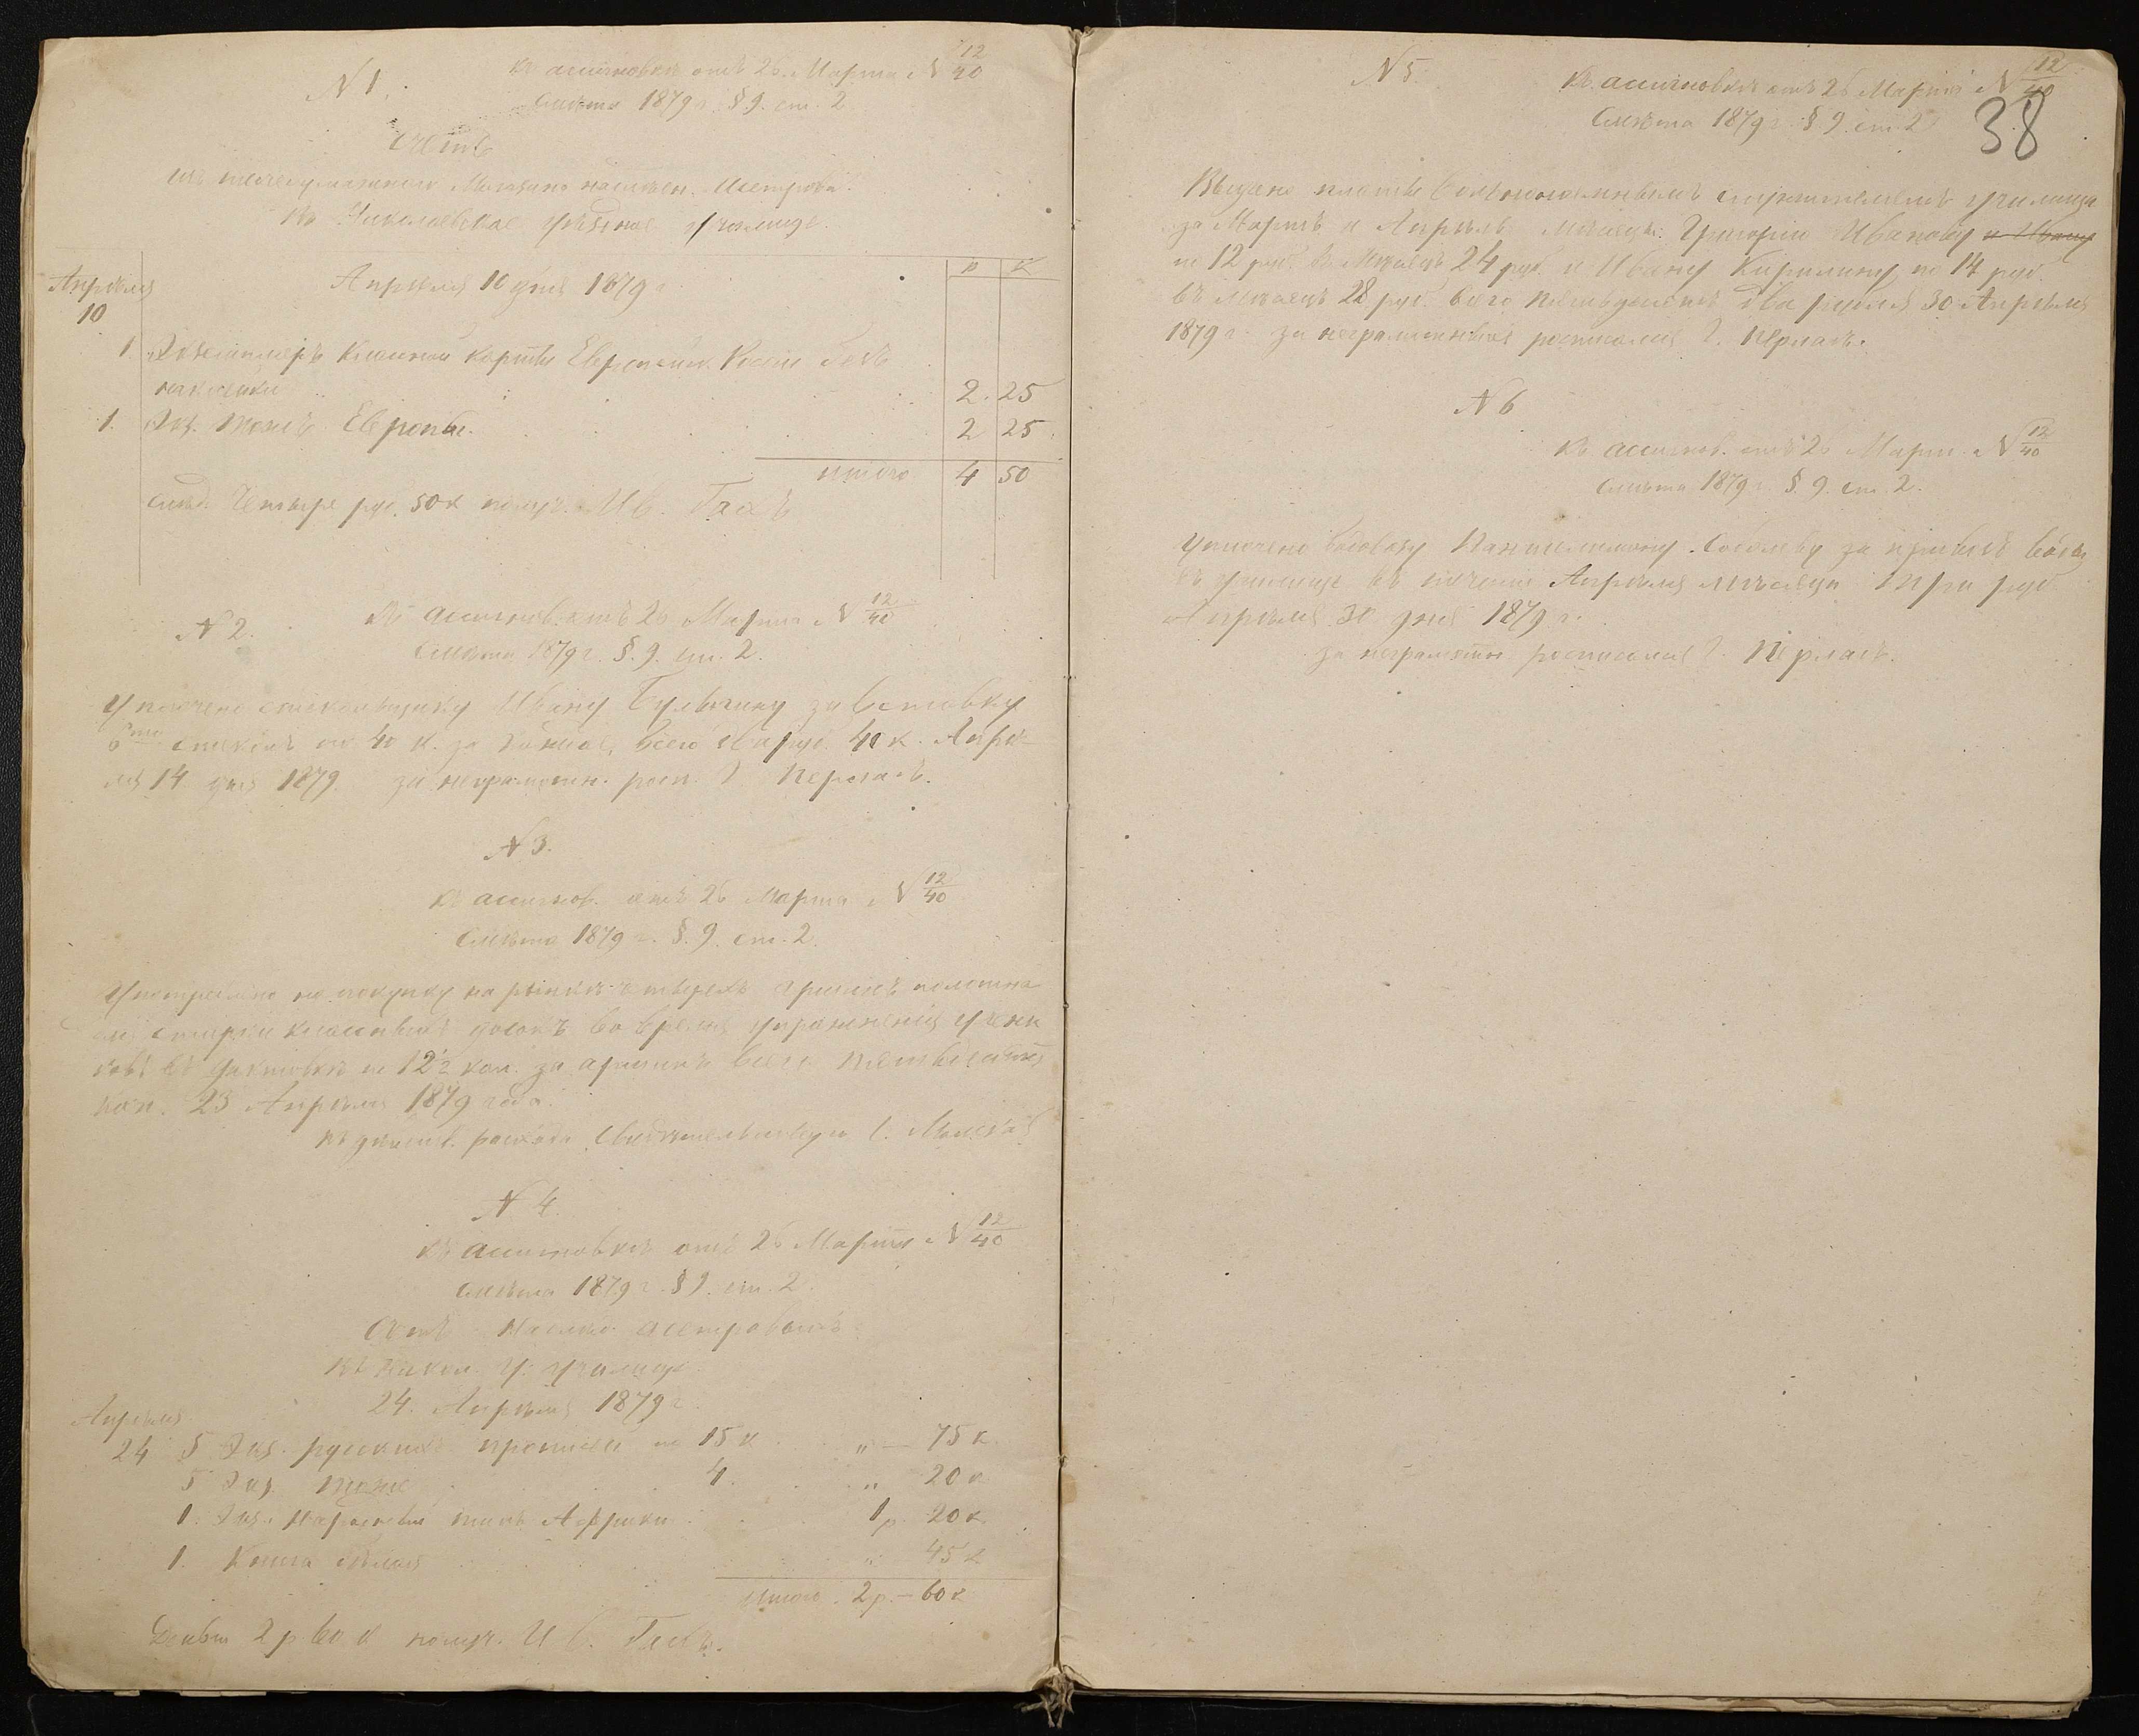 N 1.
Къ ассигновкѣ отъ 26 Марта N 12/40
Смѣта 1879 г. § 9. ст. 2
Счетъ
изъ Магазина наслѣдн.
Въ Николаевское уѣздное училище.
Апрѣля 10 дня 1879 г.
р к
Апрѣля
10
1. Экземпляръ картъ Европейск. Россіи безъ
наклейки 2. 25
1. Экз. тоже Европы. 2 25
итого 4 50
Четыре руб. 50 к получ. Ив. Гаазъ
N 2.
Къ ассигнов. отъ 26 Марта N 12/40
Смѣта 1879 г. §. 9. ст. 2.
Уплочено стекольщику Ивану Булыгину за вставку
6ти стеколъ по 40 к. за каждое, всего два руб. 40 к. Апрѣ-
ля 14 дня 1879. за неграмотн. росп. Г. Перлавъ.
N 3.
Къ ассигнов. отъ 26 Марта N 12/40
Смѣта 1879 г. §. 9. ст. 2.
Употреблено на покупку на рынкѣ четырехъ аршинъ полотна
для стирки классныхъ досокъ во время упражненія учени
ковъ въ диктовкѣ по 12 1/2 коп. за аршинъ всего пятьдесятъ
коп. 23 Апрѣля 1879 года.
расхода свидѣтельствую
N 4.
Къ ассигновкѣ отъ 26 Марта N 12/40
Смѣта 1879 г. § 9. ст. 2.
Счетъ
Въ Никол. У. училище.
24. Апрѣля 1879 г.
Апрѣля
24 5 Экз. русскихъ прописей по 15 к. „ — 75 к.
5 Экз. тоже 4. „ 20 к
1. Экз. Африки 1 р. 20 к.
1. Книга „ 45 к
Итого 2 р. — 60 к
Деньги 2 р 60 к получ. Ив. Гаазъ.
N 5.
Къ ассигновкѣ отъ 26 Марта N 12/40
38
Смѣта 1879 г. § 9. ст. 2
Выдано платы вольнонаемнымъ служителямъ училища
за Мартъ и Апрѣль мѣсяцы: Григорію Иванову и Ивану
по 12 руб. въ мѣсяцъ 24 руб. и Ивану Кирилину по 14 руб.
въ мѣсяцъ 28 руб. всего пятьдесятъ два рубля 30 Апрѣля
1879 г. за неграмотныхъ росписался Г. Перлавъ.
N 6
Къ ассигнов. отъ 26 Марта N 12/40
Смѣта 1879 г. § 9. ст. 2.
Уплочено водовозу Пантелеймону Соболеву за привозъ воды
въ училище въ теченіи Апрѣля мѣсяца три руб.
Апрѣля 30 дня 1879 г.
за неграмотн. росписался Г. Перлавъ.